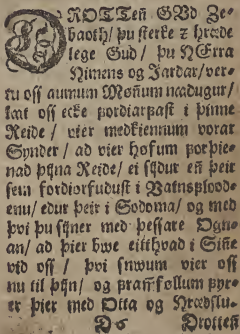 DROTTeñ GVd Ze-
baoth/ þu sterke z hræde
lege Gud/ þu HErra
Himens og Jardar/ ver-
tu oss aumum Moñum naadugur/
laat oss ecke fordiarfast i þinne
Reide/ vier medkiennum vorar
Synder/ ad vier hofum forþie-
nad þijna Reide/ ei sijdur eñ þeir
sem fordiorfudust i Vatnsflood-
enu/ edur þeir i Sodoma/ og med
þvi þu sijner med þessare Ogn-
an/ ad þier bwe eitthvad i Siñe
vid oss/ þvi snwum vier oss
nu til þijn/ og framfollum fyr-
er þier med Otta og Hrædslu-
D6 Drotten